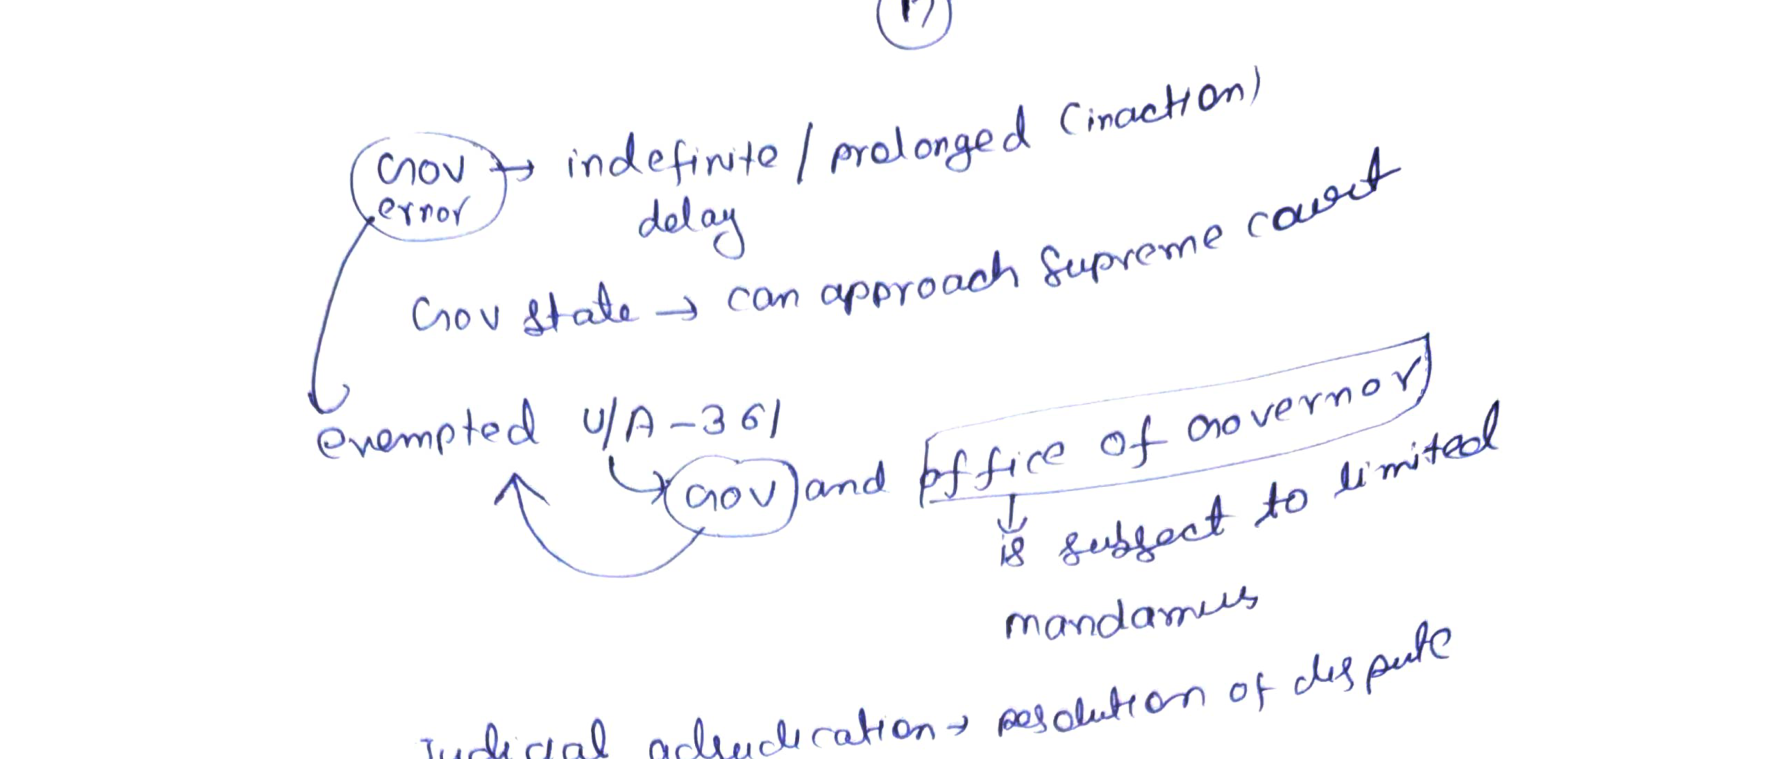 17
Gov → indefinite / prolonged (inaction)
ernor delay
Gov state → can approach Supreme court
exempted U/A - 361
Gov and office of Governor
↓
is subject to limited
mandamus
Judicial adjudication → resolution of dispute